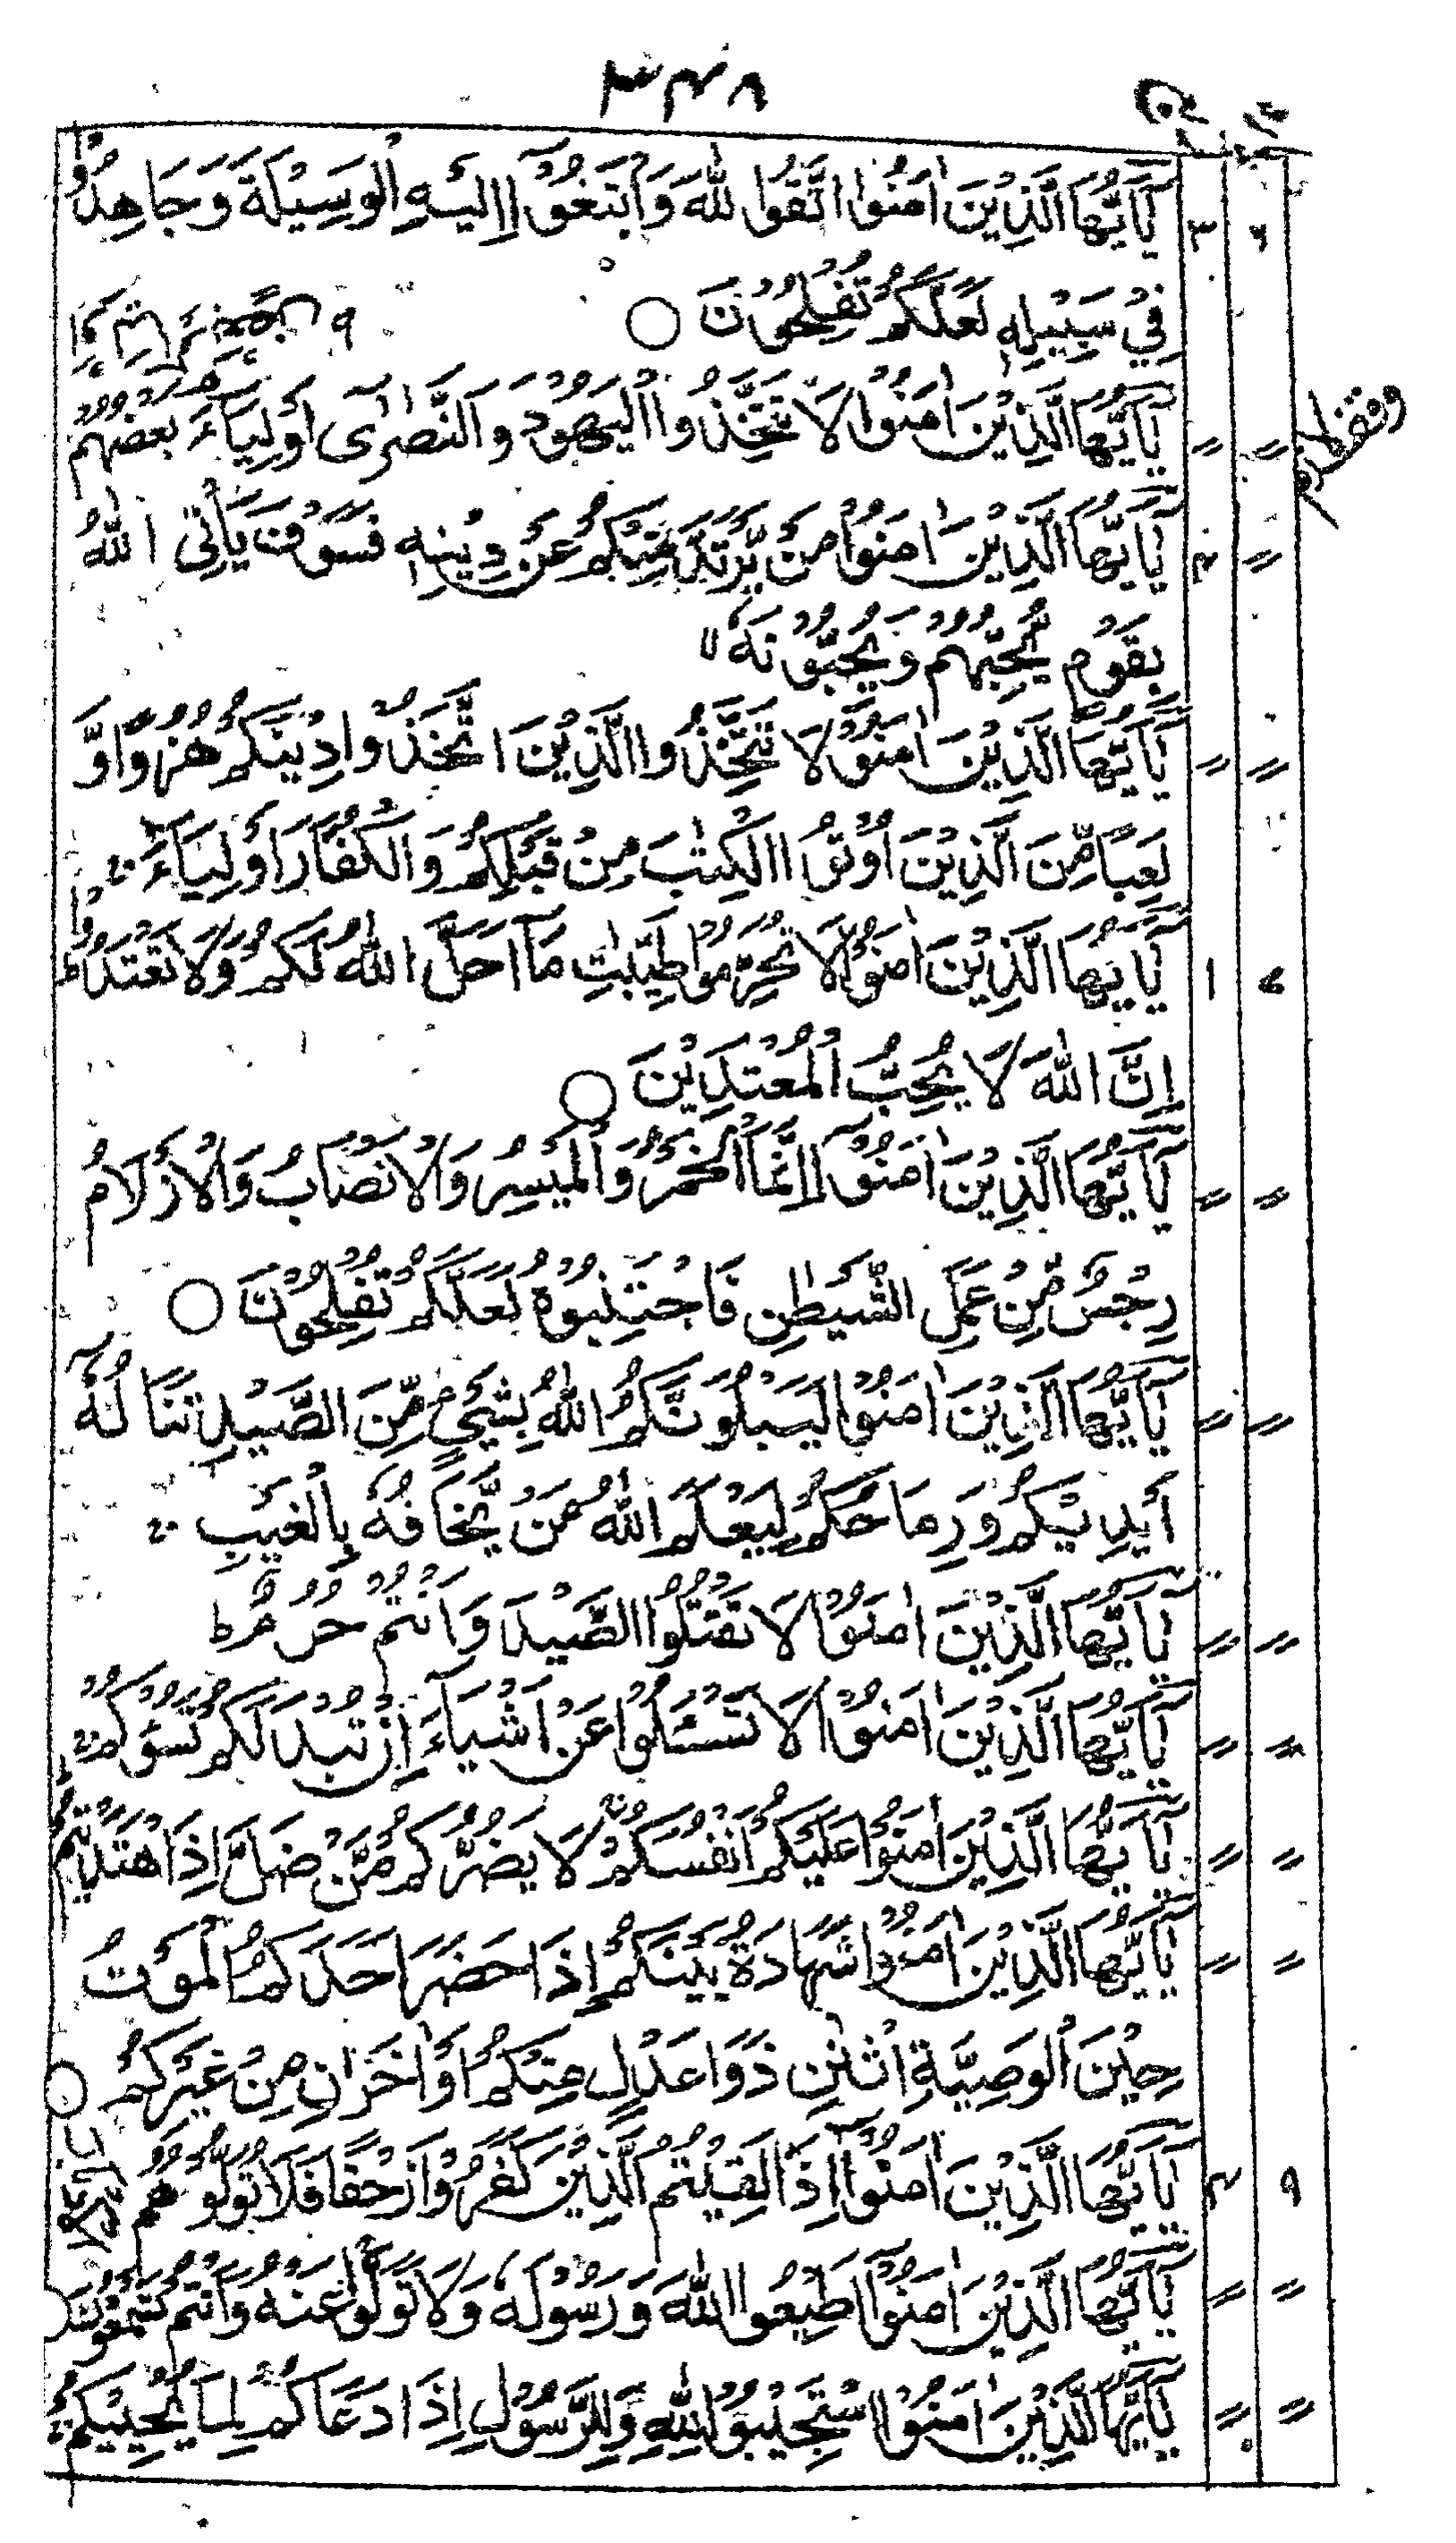 ۳۴۸
یٰۤاَیُّهَا الَّذِیْنَ اٰمَنُوا اتَّقُوا اللّٰهَ وَابْتَغُوْۤا اِلَیْهِ الْوَسِیْلَةَ وَجَاهِدُوْا ۳ ۶
فِیْ سَبِیْلِهٖ لَعَلَّكُمْ تُفْلِحُوْنَ ○
یٰۤاَیُّهَا الَّذِیْنَ اٰمَنُوْا لَا تَتَّخِذُوا الْیَهُوْدَ وَالنَّصٰرٰۤى اَوْلِیَآءَ بَعْضُهُمْ 〃 〃
یٰۤاَیُّهَا الَّذِیْنَ اٰمَنُوْا مَنْ یَّرْتَدَّ مِنْكُمْ عَنْ دِیْنِهٖ فَسَوْفَ یَاْتِی اللّٰهُ ۴ 〃
بِقَوْمٍ یُّحِبُّهُمْ وَیُحِبُّوْنَهٗۤ ۙ
یٰۤاَیُّهَا الَّذِیْنَ اٰمَنُوْا لَا تَتَّخِذُوا الَّذِیْنَ اتَّخَذُوْا دِیْنَكُمْ هُزُوًا وَّ 〃 〃
لَعِبًا مِّنَ الَّذِیْنَ اُوْتُوا الْكِتٰبَ مِنْ قَبْلِكُمْ وَالْكُفَّارَ اَوْلِیَآءَ ۚ
یٰۤاَیُّهَا الَّذِیْنَ اٰمَنُوْا لَا تُحَرِّمُوْا طَیِّبٰتِ مَاۤ اَحَلَّ اللّٰهُ لَكُمْ وَلَا تَعْتَدُوْا ؕ ۱ ۷
اِنَّ اللّٰهَ لَا یُحِبُّ الْمُعْتَدِیْنَ ○
یٰۤاَیُّهَا الَّذِیْنَ اٰمَنُوْۤا اِنَّمَا الْخَمْرُ وَالْمَیْسِرُ وَالْاَنْصَابُ وَالْاَزْلَامُ 〃 〃
رِجْسٌ مِّنْ عَمَلِ الشَّیْطٰنِ فَاجْتَنِبُوْهُ لَعَلَّكُمْ تُفْلِحُوْنَ ○
یٰۤاَیُّهَا الَّذِیْنَ اٰمَنُوْا لَیَبْلُوَنَّكُمُ اللّٰهُ بِشَیْءٍ مِّنَ الصَّیْدِ تَنَالُهٗۤ 〃 〃
اَیْدِیْكُمْ وَرِمَاحُكُمْ لِیَعْلَمَ اللّٰهُ مَنْ یَّخَافُهٗ بِالْغَیْبِ ۚ
یٰۤاَیُّهَا الَّذِیْنَ اٰمَنُوْا لَا تَقْتُلُوا الصَّیْدَ وَاَنْتُمْ حُرُمٌ ؕ 〃 〃
یٰۤاَیُّهَا الَّذِیْنَ اٰمَنُوْا لَا تَسْـَٔلُوْا عَنْ اَشْیَآءَ اِنْ تُبْدَ لَكُمْ تَسُؤْكُمْ ۚ 〃 〃
یٰۤاَیُّهَا الَّذِیْنَ اٰمَنُوْا عَلَیْكُمْ اَنْفُسَكُمْ ۚ لَا یَضُرُّكُمْ مَّنْ ضَلَّ اِذَا اهْتَدَیْتُمْ 〃 〃
یٰۤاَیُّهَا الَّذِیْنَ اٰمَنُوْا شَهَادَةُ بَیْنِكُمْ اِذَا حَضَرَ اَحَدَكُمُ الْمَوْتُ 〃 〃
حِیْنَ الْوَصِیَّةِ اثْنٰنِ ذَوَا عَدْلٍ مِّنْكُمْ اَوْ اٰخَرٰنِ مِنْ غَیْرِكُمْ ○
یٰۤاَیُّهَا الَّذِیْنَ اٰمَنُوْۤا اِذَا لَقِیْتُمُ الَّذِیْنَ كَفَرُوْا زَحْفًا فَلَا تُوَلُّوْهُمُ ۴ ۹
یٰۤاَیُّهَا الَّذِیْنَ اٰمَنُوْۤا اَطِیْعُوا اللّٰهَ وَرَسُوْلَهٗ وَلَا تَوَلَّوْا عَنْهُ وَاَنْتُمْ تَسْمَعُوْنَ ○ 〃 〃
یٰۤاَیُّهَا الَّذِیْنَ اٰمَنُوا اسْتَجِیْبُوْا لِلّٰهِ وَلِلرَّسُوْلِ اِذَا دَعَاكُمْ لِمَا یُحْیِیْكُمْ ۚ 〃 〃